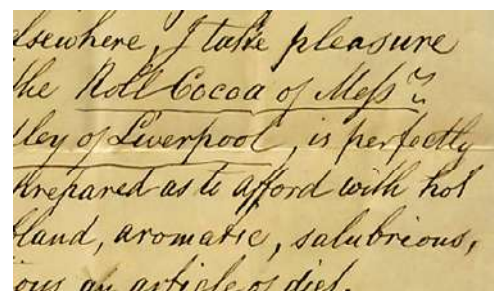 elsewhere, I take pleasure
the Roll Cocoa of Mess rs
tley of Liverpool, is perfectly
prepared as to afford with hot
bland, aromatic, salubrious,
ous an article of diet.